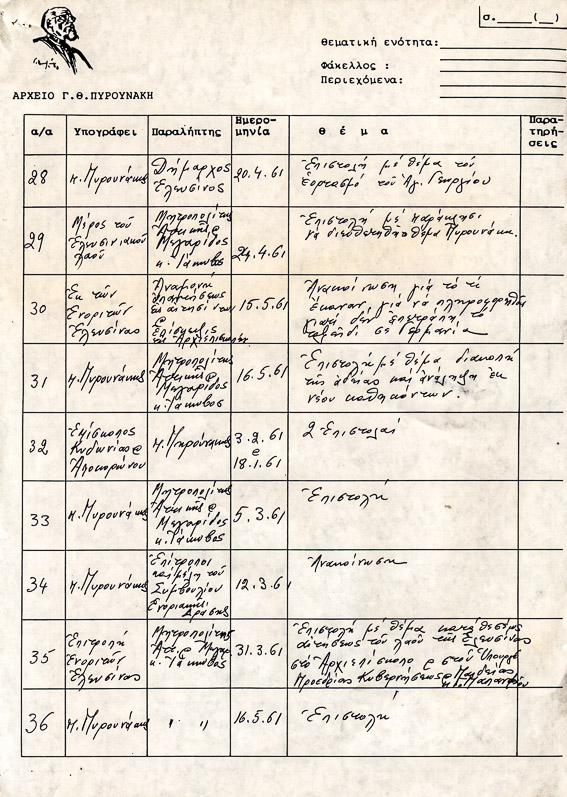 σ._____(__)
θεματική ενότητα:
Φάκελλος :
Περιεχόμενα:
ΑΡΧΕΙΟ Γ.Θ.ΠΥΡΟΥΝΑΚΗ
α/α Υπογράφει Παραλήπτης Ημερο-μηνία θ έ μ α Παρα-τηρή-σεις
28 π. Πυρουνάκης Δήμαρχος Ελευσίνος 20.4.61 Ἐπιστολή μέ θέμα τόν
ἑορτασμό τοῦ Ἁγ. Γεωργίου
29 Μέρος τοῦ Ἐλευσινιακοῦ λαοῦ Μητροπολίτης Ἀττικῆς & Μεγαρίδος κ. Ἰάκωβος 24.4.61 Ἐπιστολή μέ παράκληση
νά διευθετηθεῖ τό θέμα Πυρουνάκη.
30 Ἐκ τῶν Ἐνοριτῶν Ἐλευσίνας 15.5.61 Ἀνακοίνωση γιά τό τί
ἔκαναν, γιά νά πληροφορηθοῦν
γιατί δέν ἐπετράπη τό
ταξίδι σέ Γερμανία
31 π. Πυρουνάκης Μητροπολίτης Ἀττικῆς & Μεγαρίδος κ. Ἰάκωβος 16.5.61 Ἐπιστολή μέ θέμα διακοπή
τῆς ἀδείας καί ἀνάληψη ἐκ
νέου καθηκόντων.
32 Ἐπίσκοπος Κυδωνίας & Ἀποκορώνου π. Πυρουνάκης 3.2.61 & 18.1.61 2 Ἐπιστολαί
33 π. Πυρουνάκης Μητροπολίτης Ἀττικῆς & Μεγαρίδος κ. Ἰάκωβος 5.3.61 Ἐπιστολή
34 π. Πυρουνάκης Ἐπίτροποι καί μέλη τοῦ Συμβουλίου Ἐνοριακῆς Δράσης 12.3.61 Ἀνακοίνωση
35 Ἐπιτροπή Ἐνοριτῶν Ἐλευσίνας Μητροπολίτης Ἀττ. & Μεγαρ. κ. Ἰάκωβος 31.3.61 Ἐπιστολή μέ θέμα καταθέσεως
αἰτήσεως τοῦ λαοῦ τῆς Ἐλευσίνας
στό Ἀρχιεπίσκοπο & στόν Ὑπουργό
Προεδρίας Κυβερνήσεως & Παιδείας
36 π. Πυρουνάκης " " 16.5.61 Ἐπιστολή